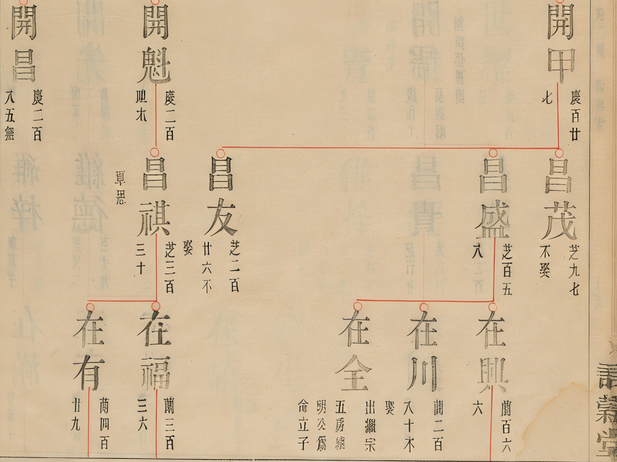 開甲
慶百廿
七
開魁
慶二百
開昌
慶二百
八五無
昌茂
芝九七
不娶
昌盛
芝百五
八
昌友
芝二百
廿六不
娶
昌祺
芝三百
三十
在興
蘭百六
六
在川
蘭二百
八十不
娶
在全
出繼宗
五房繼
明公為
命立子
在福
蘭三百
三六
在有
蘭四百
廿九